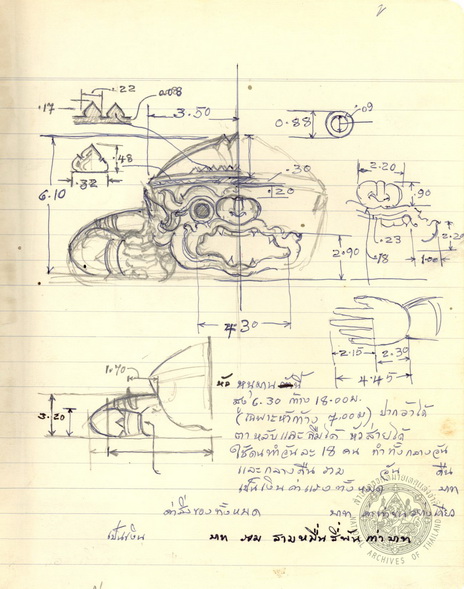 .22
.17
ลอย
3.50
0.88
.09
.48
.32
6.10
.30
.20
2.20
.90
.23
.18
1.00
2.20
2.90
4.30
2.15
2.30
4.45
1.70
3.20
หัว หนุมานนี้
สูง 6.30 กว้าง 18.00 ม.
(เฉพาะหัวกว้าง 7.00 ม) ปากอ้าได้
ตาหลับและลืมได้ หัวส่ายได้
ใช้คนทำวันละ 18 คน ทำทั้งกลางวัน
และกลางคืน รวม วัน คืน
เป็นเงินค่าแรงทั้งหมด บาท
ค่าสิ่งของทั้งหมด บาท
เป็นเงิน บาท รวม สามหมื่นสี่พัน บาท
ARCHIVES OF THAILAND